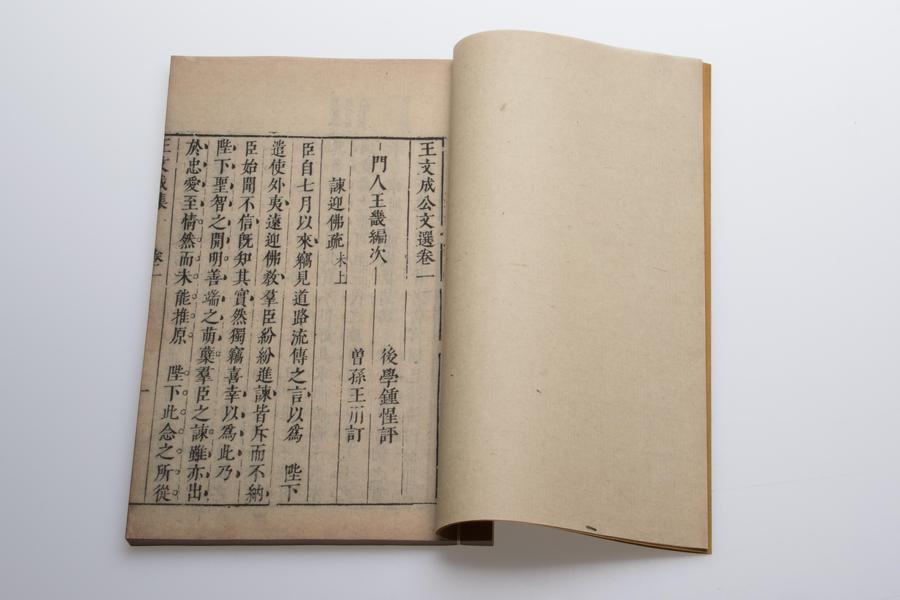 王文成公文選卷一
門人王畿編次
後學鍾惺評
曾孫王川訂
諫迎佛疏未上
臣自七月以來竊見道路流傳之言以爲 陛下
遣使外夷遠迎佛教羣臣紛紛進諫皆斥而不納
臣始聞不信旣知其實然獨竊喜幸以爲此乃
陛下聖智之開明善端之萌蘖羣臣之諫雖亦出
於忠愛至情然而未能推原 陛下此念之所從
王文成集 卷一 一